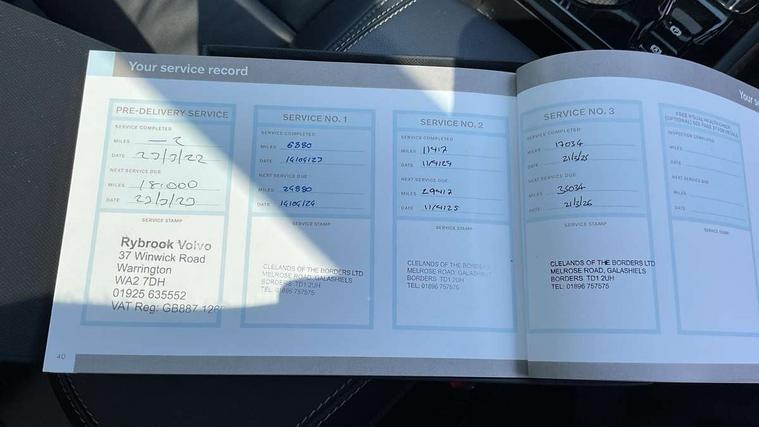 Your service record
PRE-DELIVERY SERVICE
SERVICE COMPLETED
MILES
DATE
NEXT SERVICE DUE
MILES 18.000
DATE
SERVICE STAMP
Rybrook Volvo
37 Winwick Road
Warrington
WA2 7DH
01925 635552
VAT Reg: GB887
SERVICE NO. 1
SERVICE COMPLETED
MILES 6880
DATE
NEXT SERVICE DUE
MILES 24880
DATE
SERVICE STAMP
CLELANDS OF THE BORDERS LTD
MELROSE ROAD, GALASHIELS
BORDERS TD1 2UH
TEL: 01896 757575
SERVICE NO. 2
SERVICE COMPLETED
MILES 11417
DATE 11/4/24
NEXT SERVICE DUE
MILES 29417
DATE 11/4/25
SERVICE STAMP
CLELANDS OF THE BORDERS
MELROSE ROAD, GALASHIELS
BORDERS TD1 2UH
TEL: 01896 757575
SERVICE NO. 3
SERVICE COMPLETED
MILES 17034
DATE 21/3/25
NEXT SERVICE DUE
MILES 35034
DATE 21/3/26
SERVICE STAMP
CLELANDS OF THE BORDERS LTD
MELROSE ROAD, GALASHIELS
BORDERS TD1 2UH
TEL: 01896 757575
INSPECTION COMPLETED
MILES
DATE
NEXT SERVICE DUE
MILES
DATE
SERVICE STAMP
Your
40